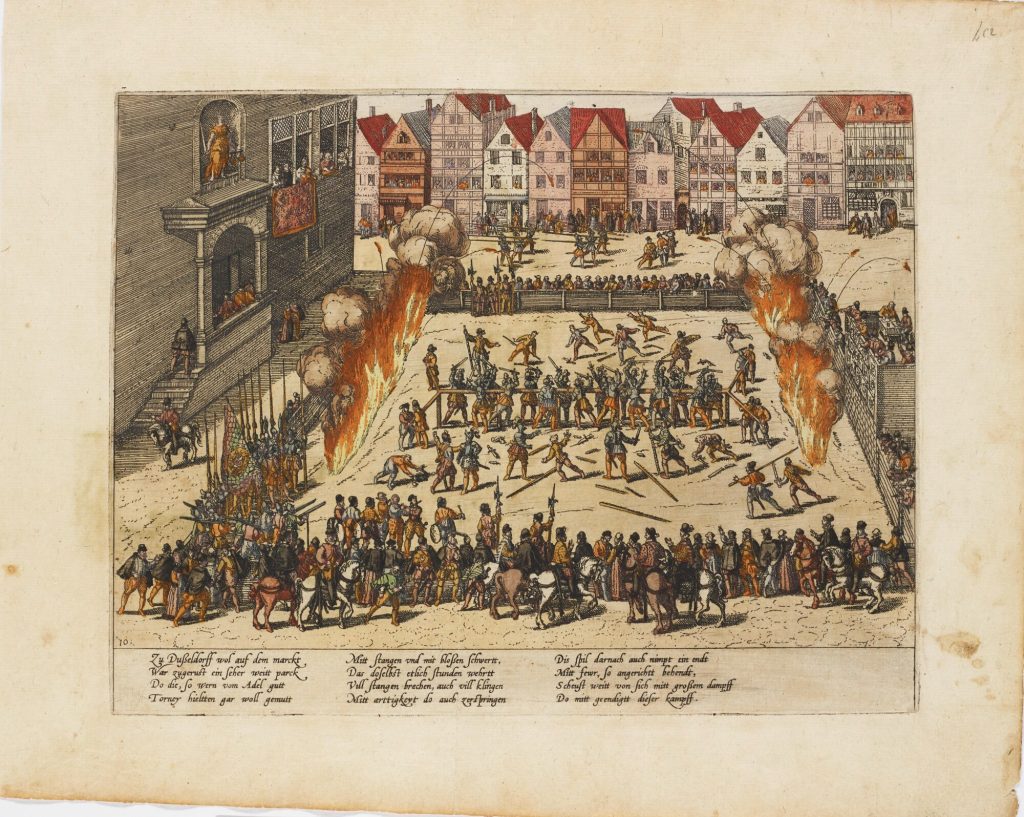 10.
Zu Dußeldorff wol auf dem marckt
War zugerust ein seher weitt parck
Do die, so wern vom Adel gutt
Torney hieltten gar woll gemutt
Mitt stangen vnd mit bloßen schwertt,
Das doselbst etlich stunden wehrtt
Vill stangen brechen, auch vill klingen
Mitt arttigkeyt do auch zerspringen
Dis spil darnach auch nimpt ein endt
Mitt fewr, so angericht behendt,
Scheust weitt von sich mitt großem dampff
Do mitt geendigtt dieser kampff.